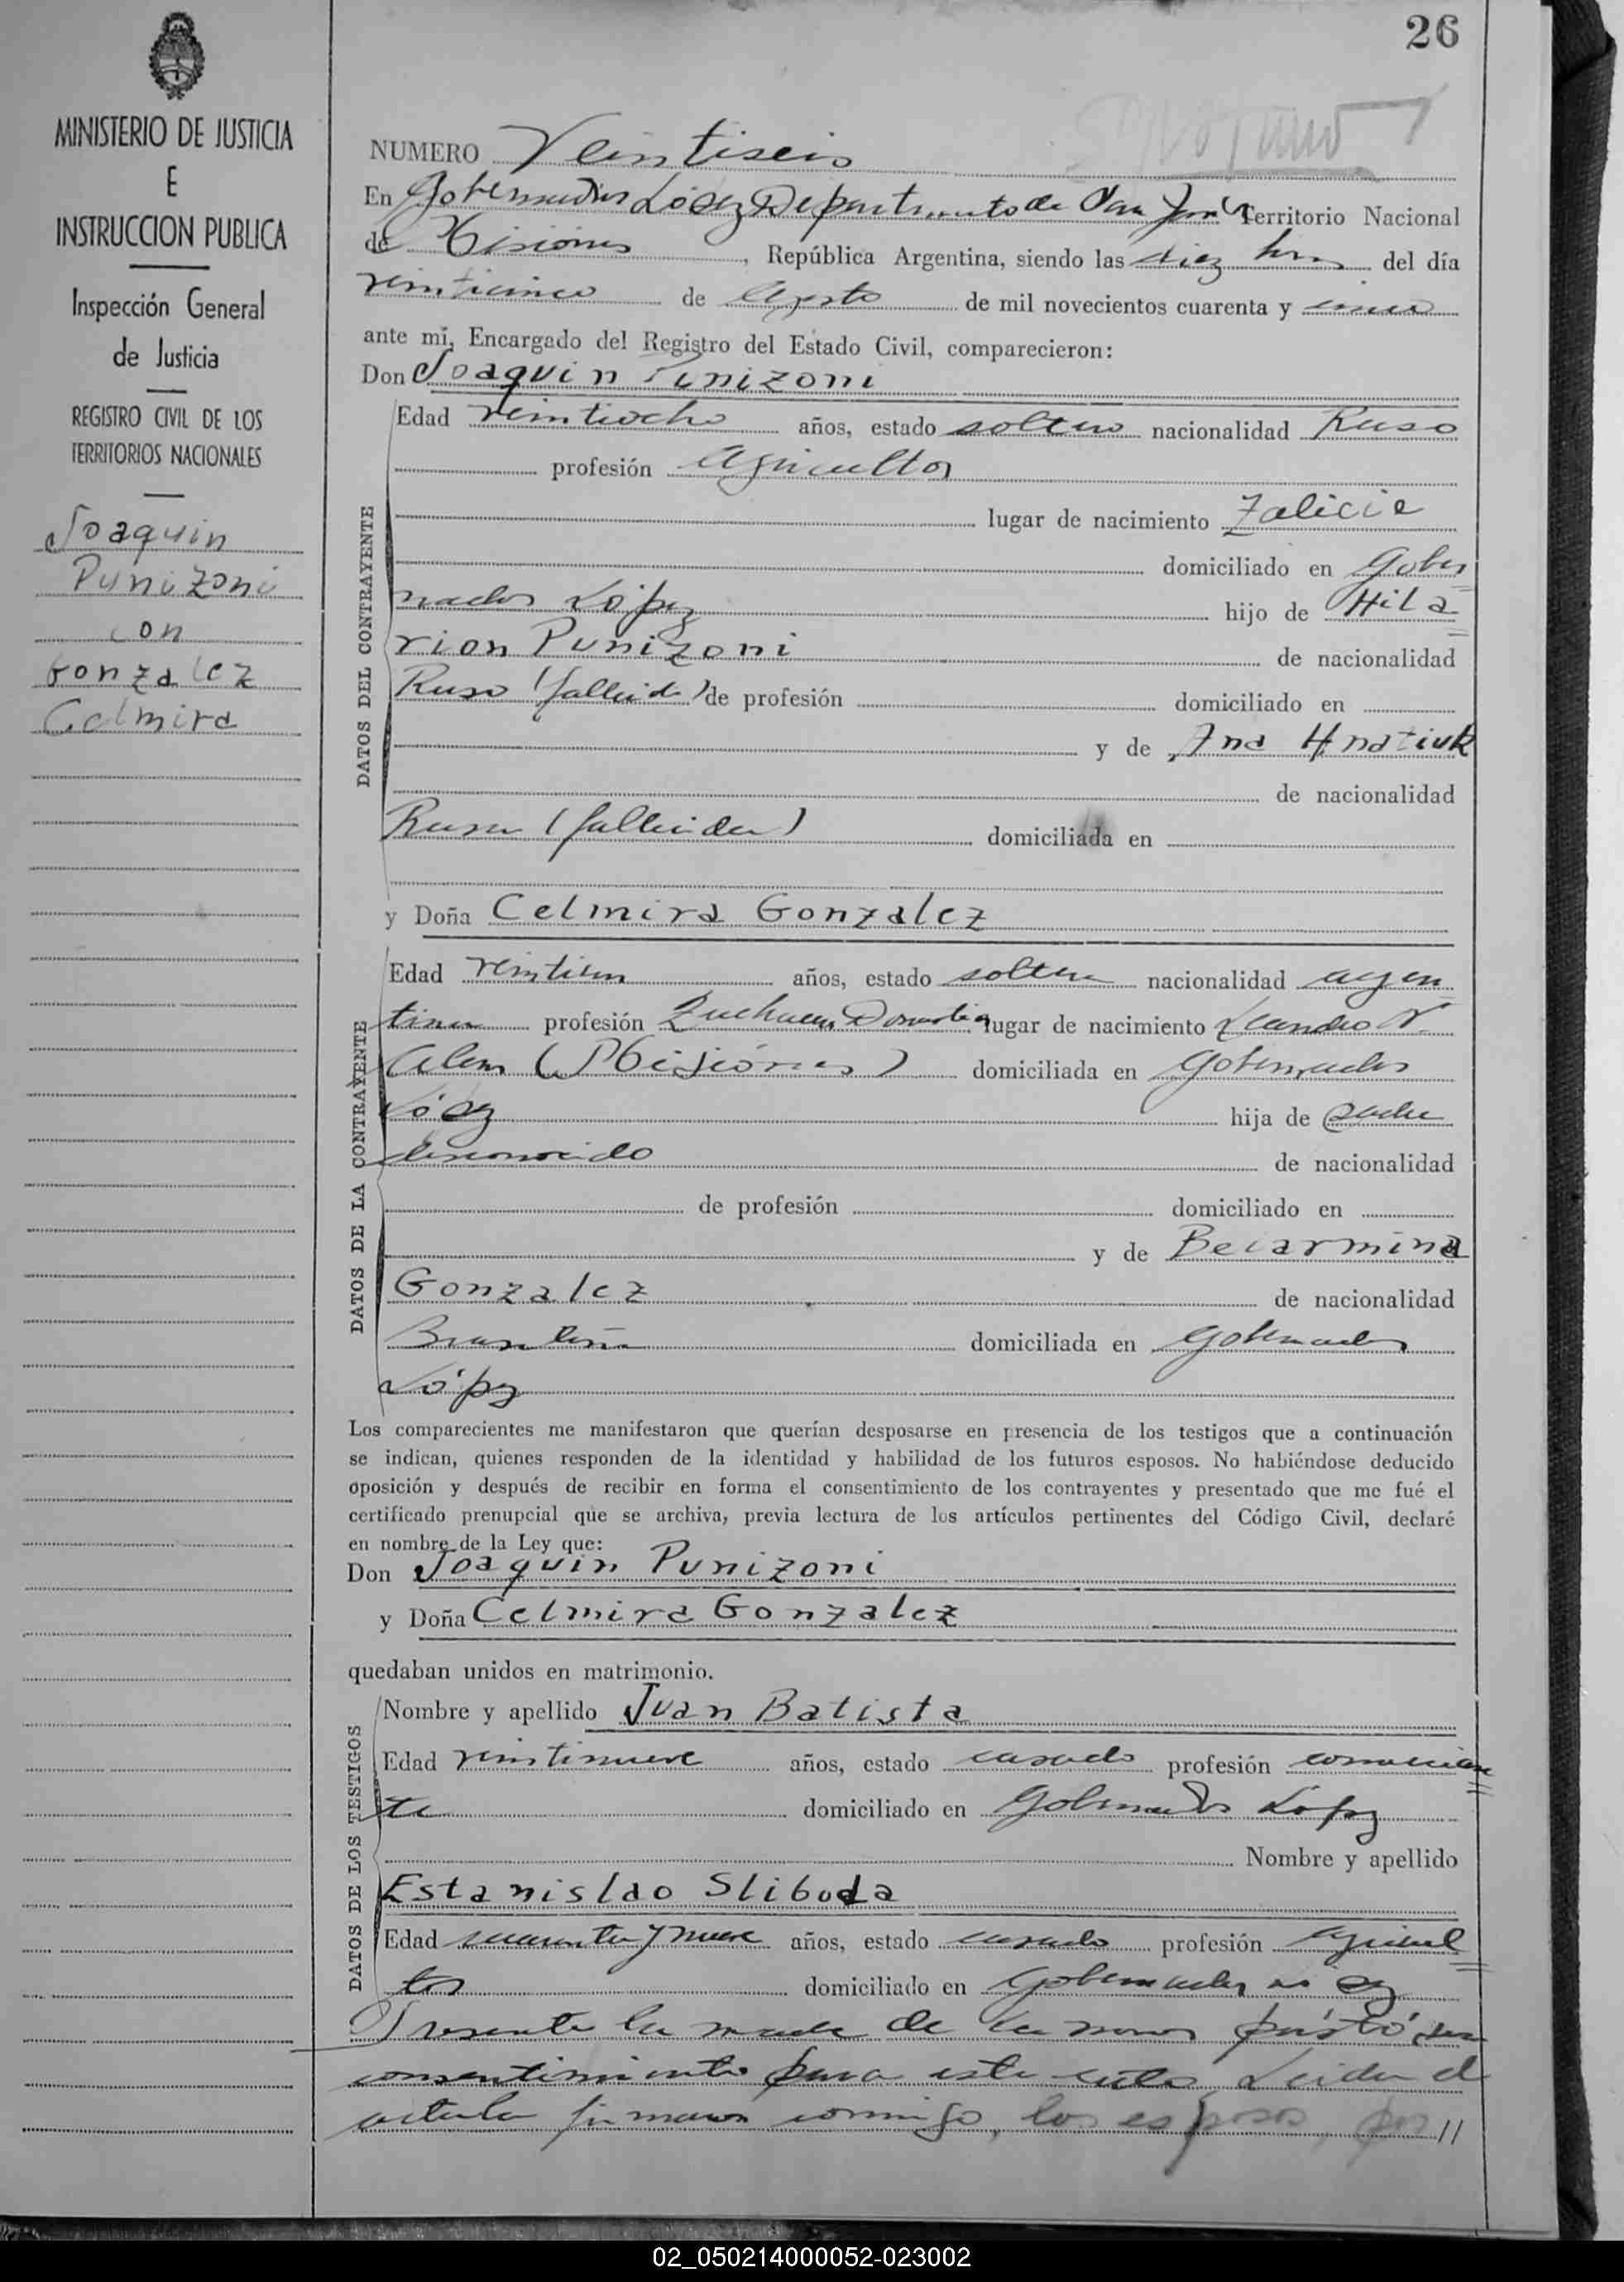 26
MINISTERIO DE JUSTICIA
E
INSTRUCCION PUBLICA
Inspección General
de Justicia
REGISTRO CIVIL DE LOS
TERRITORIOS NACIONALES
Joaquin
Punizoni
con
Gonzalez
Celmira
NUMERO Veintiseis
En Gobernador López Departamento de San José Territorio Nacional
de Misiones, República Argentina, siendo las diez hrs del día
veinticinco de Agosto de mil novecientos cuarenta y cinco
ante mi, Encargado del Registro del Estado Civil, comparecieron:
Don Joaquin Punizoni
DATOS DEL CONTRAYENTE
Edad veintiocho años, estado soltero nacionalidad Ruso
profesión Agricultor
lugar de nacimiento Zalicie
domiciliado en Gober
nador López hijo de Hila
rion Punizoni de nacionalidad
Ruso (fallecido) de profesión domiciliado en
y de Ana Hnatiuk
de nacionalidad
Rusa (fallecida) domiciliada en
y Doña Celmira Gonzalez
DATOS DE LA CONTRAYENTE
Edad veintiun años, estado soltera nacionalidad argen
tina profesión Quehaceres Domestico lugar de nacimiento Leandro N.
Alem (Misiones) domiciliada en Gobernador
López hija de padre
desconocido de nacionalidad
de profesión domiciliado en
y de Belarmina
Gonzalez de nacionalidad
Brasileña domiciliada en Gobernador
López
Los comparecientes me manifestaron que querían desposarse en presencia de los testigos que a continuación
se indican, quienes responden de la identidad y habilidad de los futuros esposos. No habiéndose deducido
oposición y después de recibir en forma el consentimiento de los contrayentes y presentado que me fué el
certificado prenupcial que se archiva, previa lectura de los artículos pertinentes del Código Civil, declaré
en nombre de la Ley que:
Don Joaquin Punizoni
y Doña Celmira Gonzalez
quedaban unidos en matrimonio.
DATOS DE LOS TESTIGOS
Nombre y apellido Juan Batista
Edad veintinueve años, estado casado profesión comercian
te domiciliado en Gobernador López
Nombre y apellido
Estanislao Sliboda
Edad cuarenta y nueve años, estado casado profesión Agricul
tor domiciliado en Gobernador López
Presente la madre de la novia prestó su
consentimiento para este acto, Leida el
acta la firmaron conmigo, los esposos, por //
02_050214000052-023002